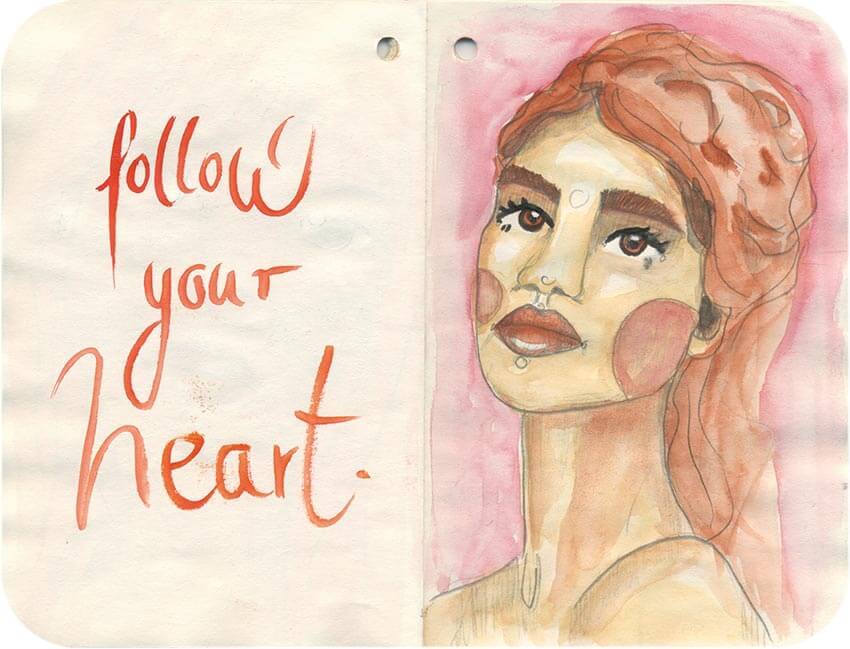 follow
your
heart.